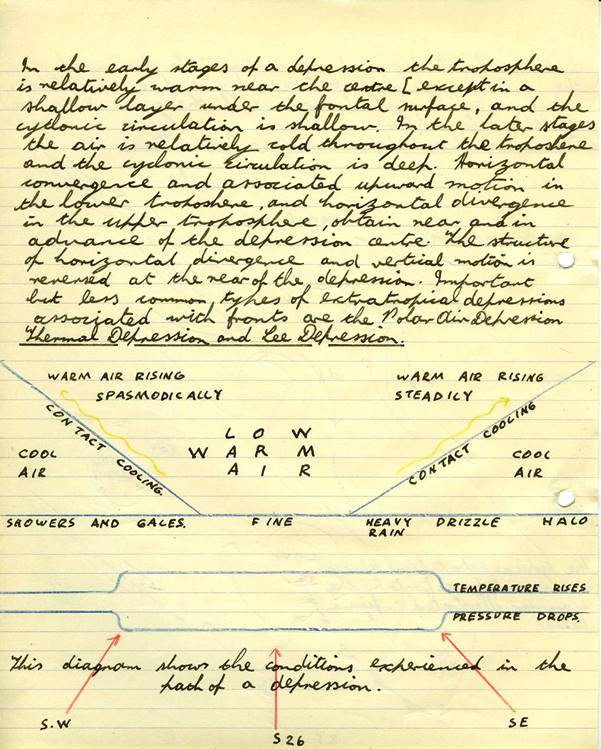 In the early stages of a depression the troposphere
is relatively warm near the centre [ except in a
shallow layer under the frontal surface, and the
cyclonic circulation is shallow. In the later stages
the air is relatively cold throughout the troposhere
and the cyclonic circulation is deep. Horizontal
convergence and associated upward motion in
the lower troposhere, and horizontal divergence
in the upper troposphere, obtain near and in
advance of the depression centre. The structure
of horizontal divergence and vertical motion is
reversed at the rear of the depression. Important
but less common, types of extratropical depressions
associated with fronts are the Polar Air Depression
Thermal Depression and Lee Depression.
WARM AIR RISING
SPASMODICALLY
WARM AIR RISING
STEADILY
CONTACT COOLING
LOW
WARM
AIR
CONTACT COOLING
COOL
AIR
COOL
AIR
SHOWERS AND GALES. FINE HEAVY DRIZZLE HALO
RAIN
TEMPERATURE RISES
PRESSURE DROPS.
This diagram shows the conditions experienced in the
path of a depression.
S.W SE
S26